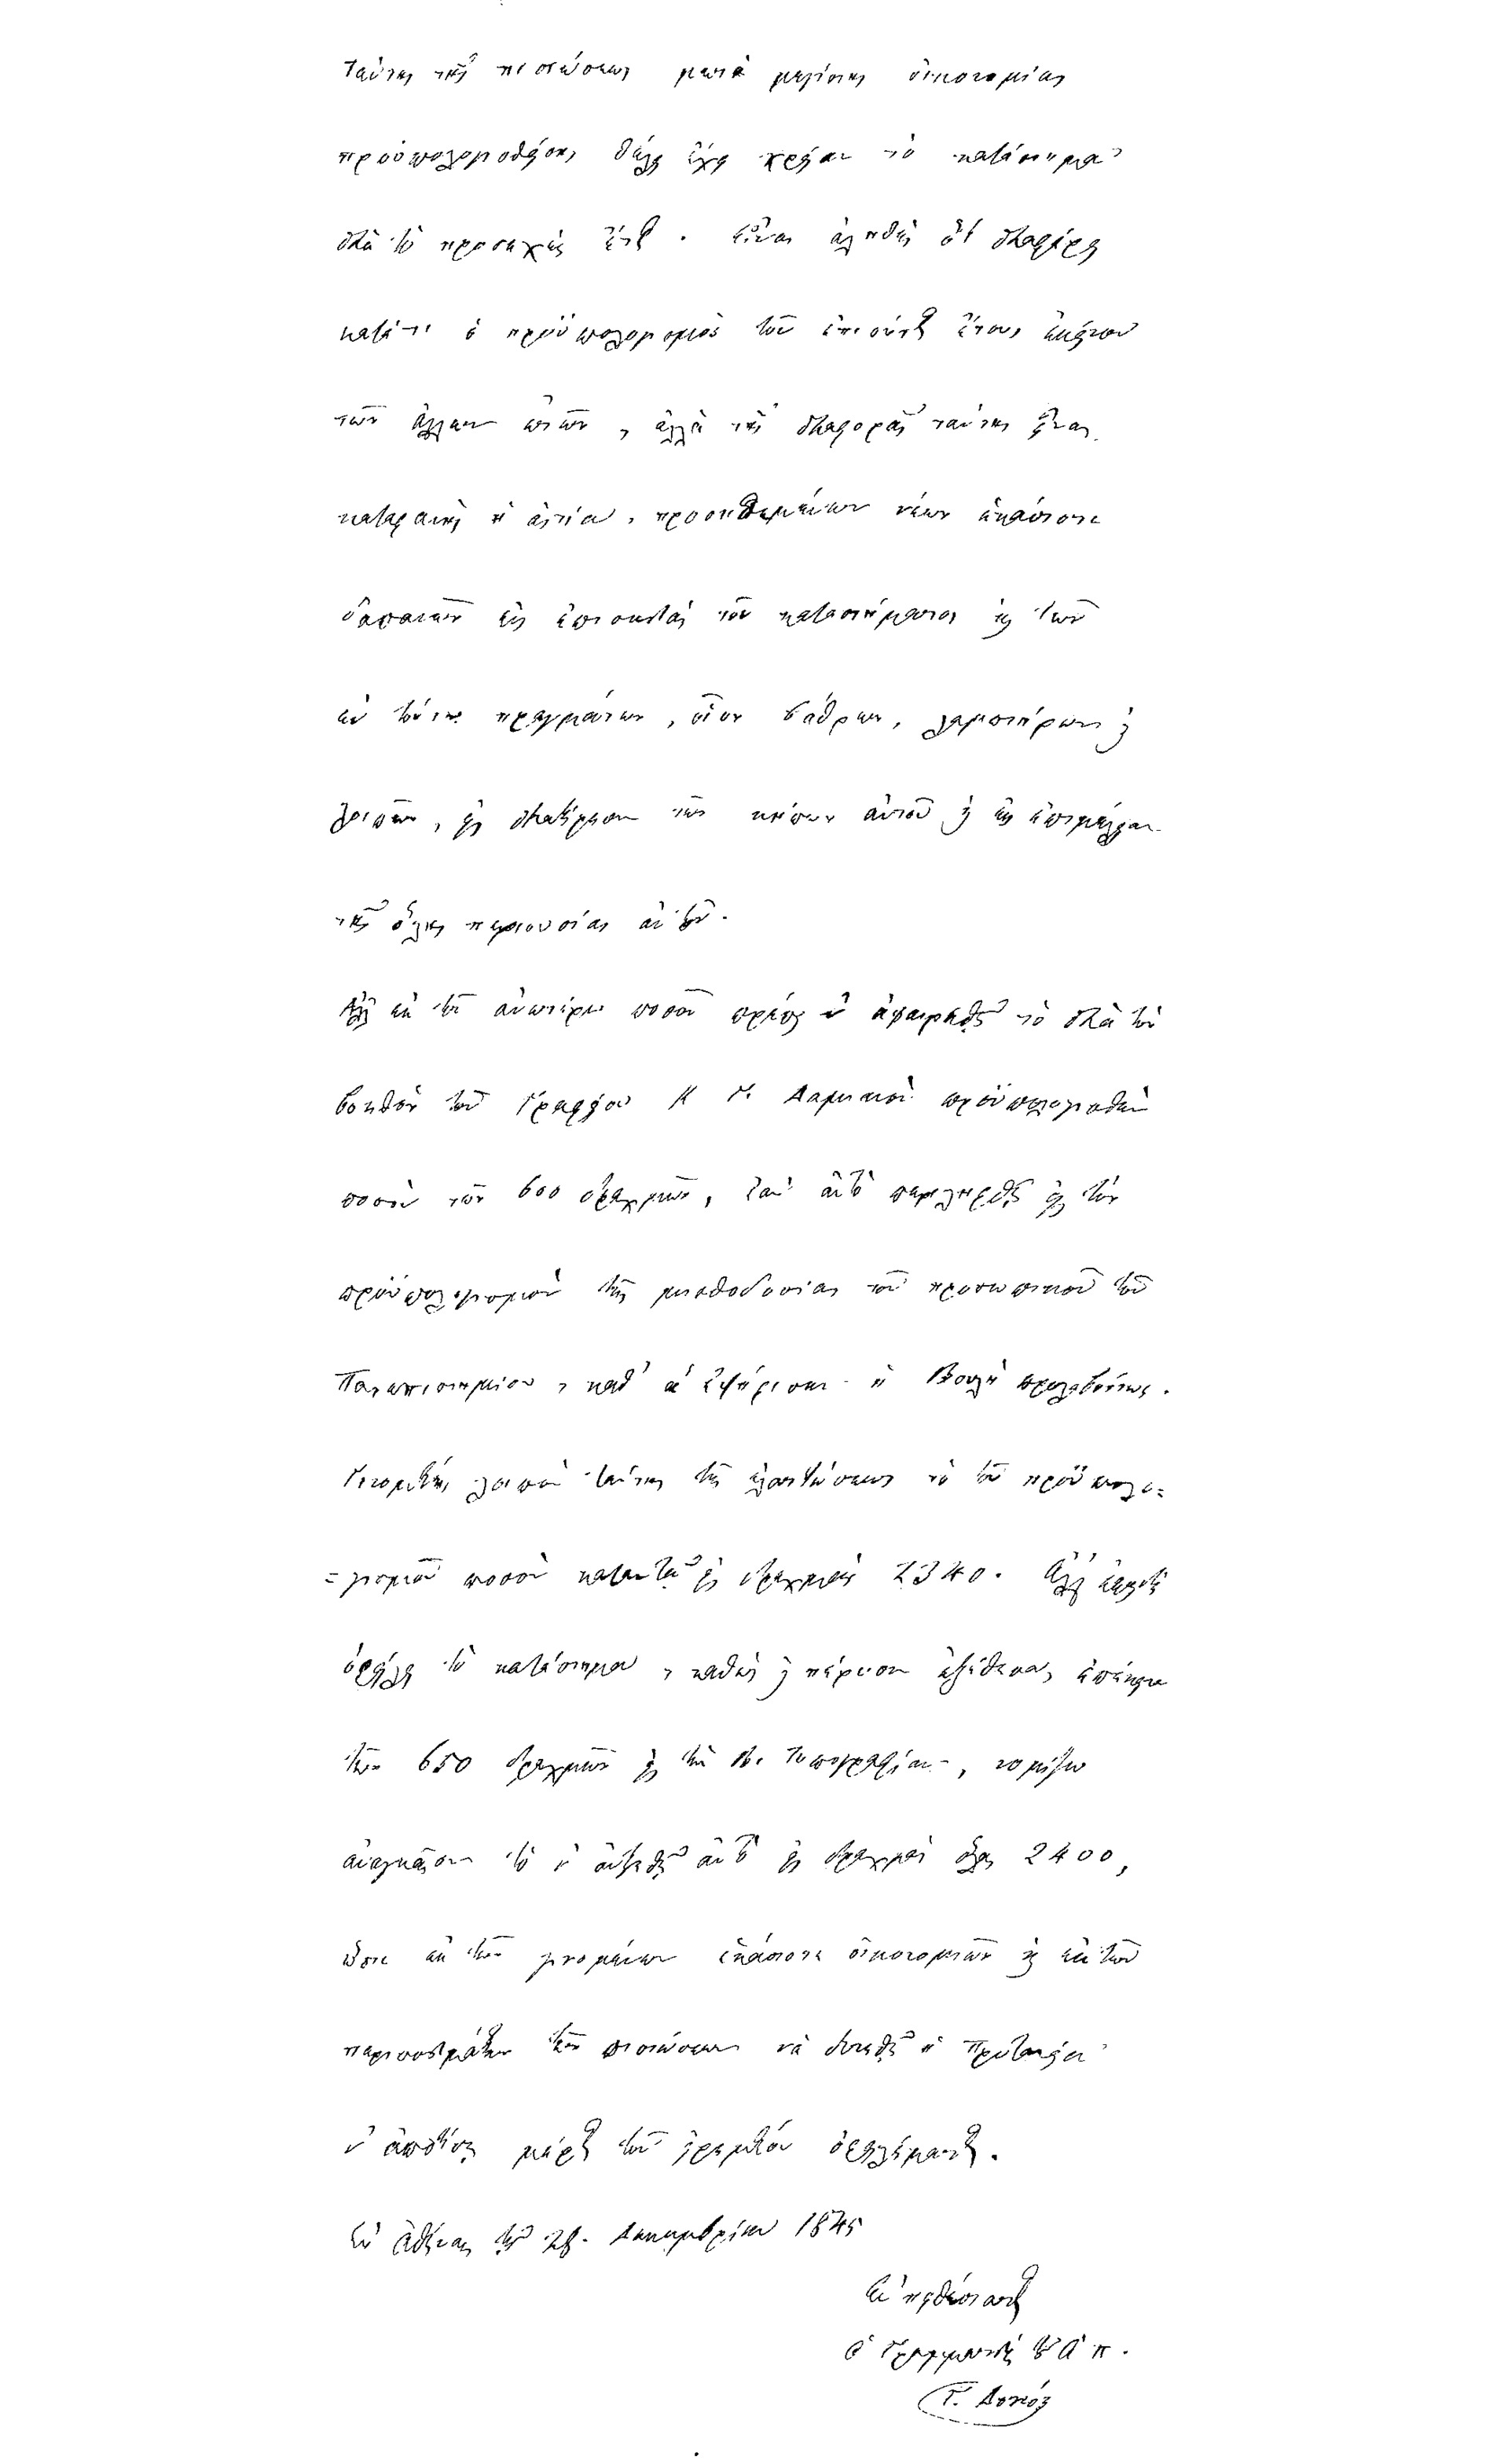 ταύτης τῆς πιστώσεως μετὰ μεγίστης οἰκονομίας
προϋπολογισθείσης θέλει ἔχει χρείαν τὸ κατάστημα
διὰ τὸ προσεχὲς ἔτος. εἶναι ἀληθὲς ὅτι διαφέρει
κατά τι ὁ προϋπολογισμὸς τοῦ ἐπιόντος ἔτους ἐκείνου
τῶν ἄλλων ἐτῶν, ἀλλὰ τῆς διαφορᾶς ταύτης εἶναι
καταφανὴς ἡ αἰτία, προστιθεμένων νέων ἑκάστοτε
δαπανῶν εἰς ἐπισκευὰς τοῦ καταστήματος καὶ τῶν
ἐν τούτῳ πραγμάτων, οἷον βάθρων, λαμπτήρων καὶ
λοιπῶν, εἰς διατήρησιν τῶν κήπων αὐτοῦ καὶ εἰς ἐπιμέλειαν
τῆς ὅλης περιουσίας αὐτοῦ.
Ἀλλ' ἐκ τοῦ ἀνωτέρω ποσοῦ πρέπει ν' ἀφαιρεθῇ τὸ διὰ τὸν
βοηθὸν τοῦ Γραφείου Κ Γ. Δαμιανὸν προϋπολογισθὲν
ποσὸν τῶν 600 δραχμῶν, ἐὰν αὐτὸ περιληφθῇ εἰς τὸν
προϋπολογισμὸν τῆς μισθοδοσίας τοῦ προσωπικοῦ τοῦ
Πανεπιστημίου, καθ' ἃ ἐψήφισεν ἡ Βουλὴ προλαβόντως.
Γινομένης λοιπὸν ταύτης τῆς ἐλαττώσεως τὸ τοῦ προϋπολο=
=γισμοῦ ποσὸν καταντᾷ εἰς δραχμὰς 2340. Ἀλλ' ἐπειδὴ
ὀφείλει τὸ κατάστημα, καθὼς καὶ πέρυσιν ἐξέθεσα, ἐπέκεινα
τῶν 650 δραχμῶν εἰς τὴν Β. Τυπογραφίαν, νομίζω
ἀναγκαῖον τὸ ν' αὐξηθῇ αὐτὸ εἰς δραχμὰς ὅλας 2400,
ὥστε ἐκ τῶν γινομένων ἑκάστοτε οἰκονομιῶν καὶ ἐκ τῶν
περισσευμάτων τῶν πιστώσεων νὰ δυνηθῇ ἡ Πρυτανεία
ν' ἀποτίσῃ μέρος τοῦ ῥηθέντος ὀφειλήματος.
Ἐν Ἀθήναις τῇ 28. Δεκεμβρίου 1845
Εὐπειθέστατος
Ὁ Γραμματεὺς τοῦ Ὀ. Π.
Γ. Δοκός